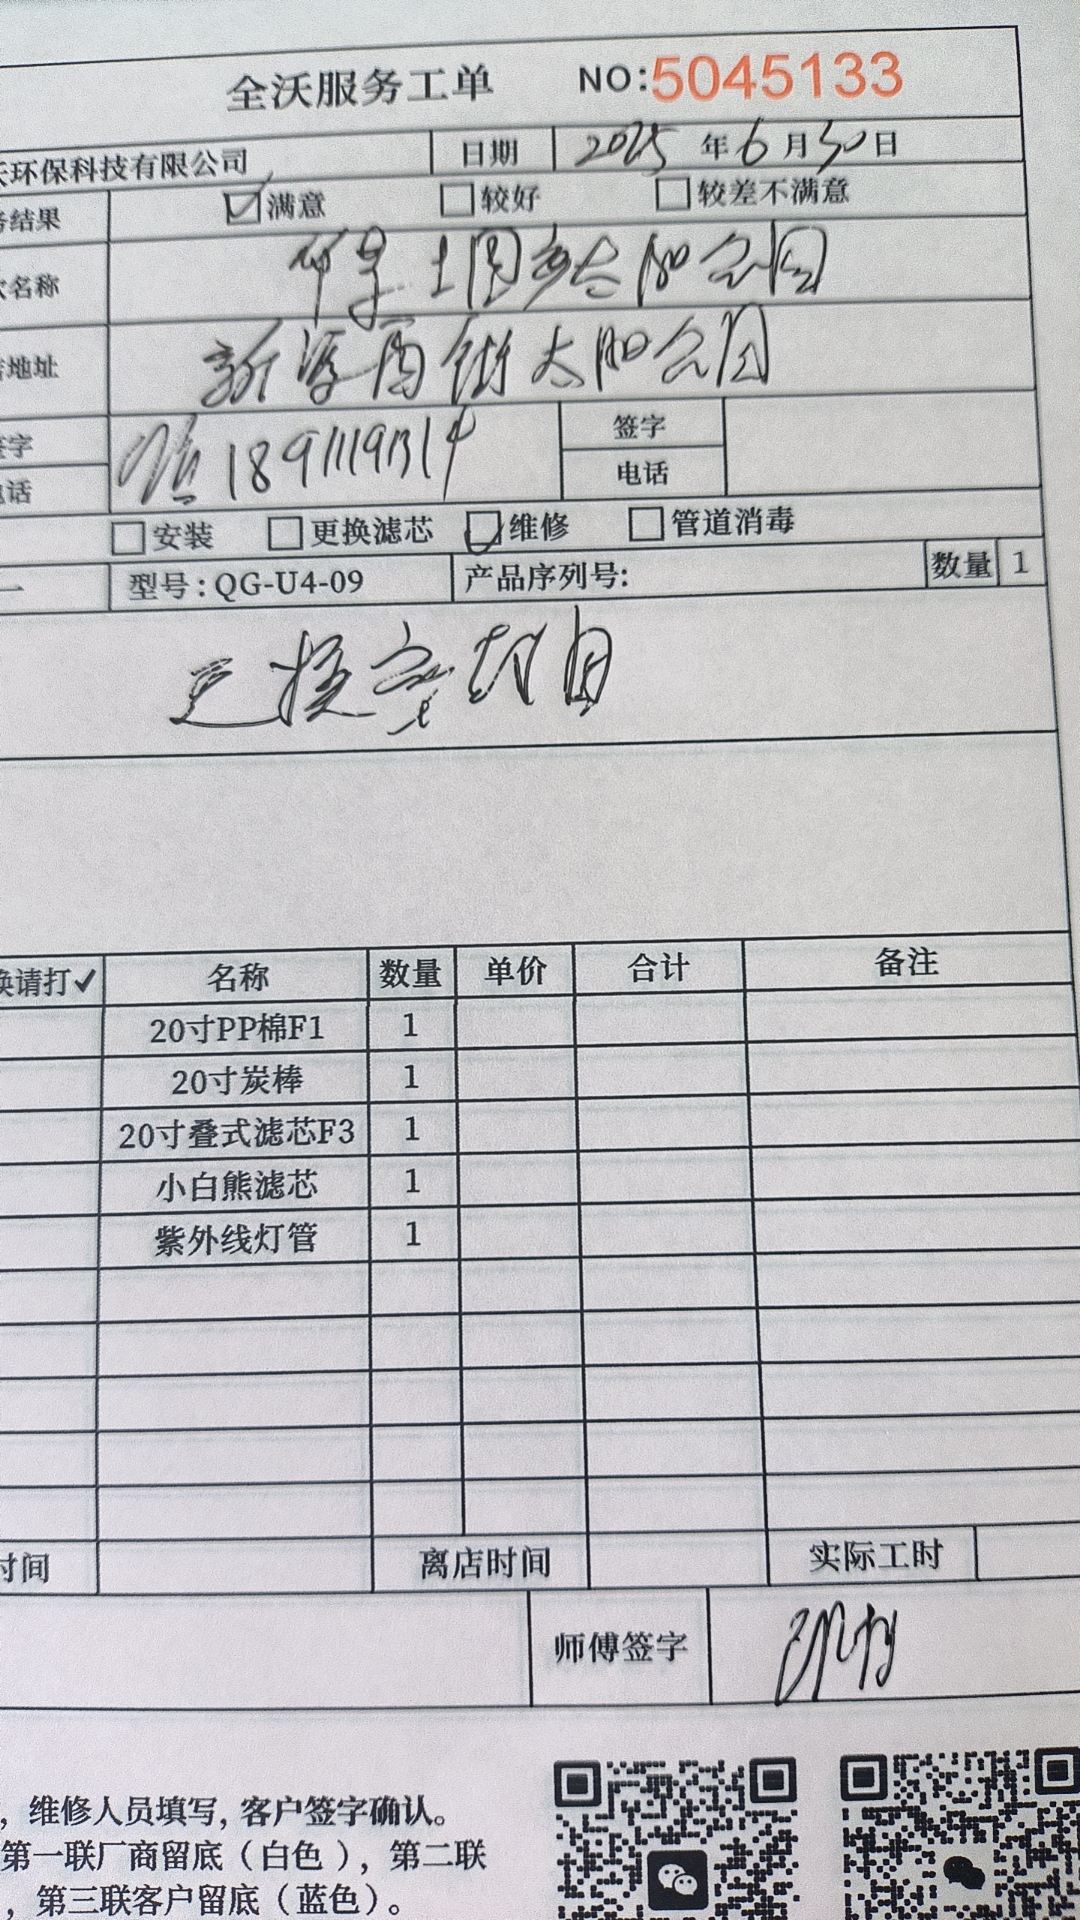 全沃服务工单 NO:5045133
沃环保科技有限公司 日期 2025 年 6 月 30 日
务结果 满意 较好 较差不满意
名称 公园
地址 新 西街太阳公园
签字 签字
电话 189111191314 电话
安装 更换滤芯 维修 管道消毒
一 型号:QG-U4-09 产品序列号: 数量 1
更换密封圈
换请打✓ 名称 数量 单价 合计 备注
20寸PP棉F1 1
20寸炭棒 1
20寸叠式滤芯F3 1
小白熊滤芯 1
紫外线灯管 1
时间 离店时间 实际工时
师傅签字
，维修人员填写，客户签字确认。
第一联厂商留底（白色），第二联
，第三联客户留底（蓝色）。